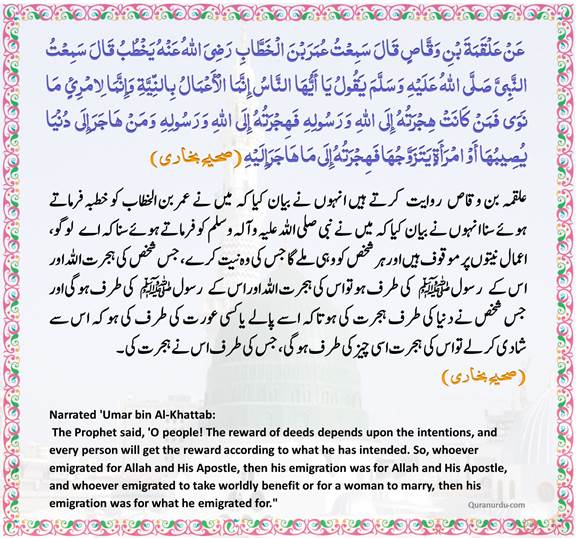 عَنْ عَلْقَمَةَ بْنِ وَقَّاصٍ قَالَ سَمِعْتُ عُمَرَ بْنَ الْخَطَّابِ رَضِیَ اللهُ عَنْهُ یَخْطُبُ قَالَ سَمِعْتُ
النَّبِیَّ صَلَّی اللهُ عَلَیْهِ وَسَلَّمَ یَقُولُ یَا أَیُّهَا النَّاسُ إِنَّمَا الْأَعْمَالُ بِالنِّیَّةِ وَإِنَّمَا لِامْرِئٍ مَا
نَوَی فَمَنْ کَانَتْ هِجْرَتُهُ إِلَی اللهِ وَرَسُولِهِ فَهِجْرَتُهُ إِلَی اللهِ وَرَسُولِهِ وَمَنْ هَاجَرَ إِلَی دُنْیَا
یُصِیبُهَا أَوْ امْرَأَةٍ یَتَزَوَّجُهَا فَهِجْرَتُهُ إِلَی مَا هَاجَرَ إِلَیْهِ (صحیح بخاری)
علقمہ بن وقاص روایت کرتے ہیں انہوں نے بیان کیا کہ میں نے عمر بن الخطاب کو خطبہ فرماتے
ہوئے سنا انہوں نے بیان کیا کہ میں نے نبی صلی اللہ علیہ وآلہ وسلم کو فرماتے ہوئے سنا کہ اے لوگو،
اعمال نیتوں پر موقوف ہیں اور ہر شخص کو وہی ملے گا جس کی وہ نیت کرے، جس شخص کی ہجرت اللہ اور
اس کے رسول ﷺ کی طرف ہو تو اس کی ہجرت اللہ اور اس کے رسول ﷺ کی طرف ہوگی اور
جس شخص نے دنیا کی طرف ہجرت کی ہو تاکہ اسے پالے یا کسی عورت کی طرف کی ہو کہ اس سے
شادی کرلے تو اس کی ہجرت اسی چیز کی طرف ہوگی، جس کی طرف اس نے ہجرت کی۔
(صحیح بخاری)
Narrated 'Umar bin Al-Khattab:
The Prophet said, 'O people! The reward of deeds depends upon the intentions, and
every person will get the reward according to what he has intended. So, whoever
emigrated for Allah and His Apostle, then his emigration was for Allah and His Apostle,
and whoever emigrated to take worldly benefit or for a woman to marry, then his
emigration was for what he emigrated for."
Quranurdu-com